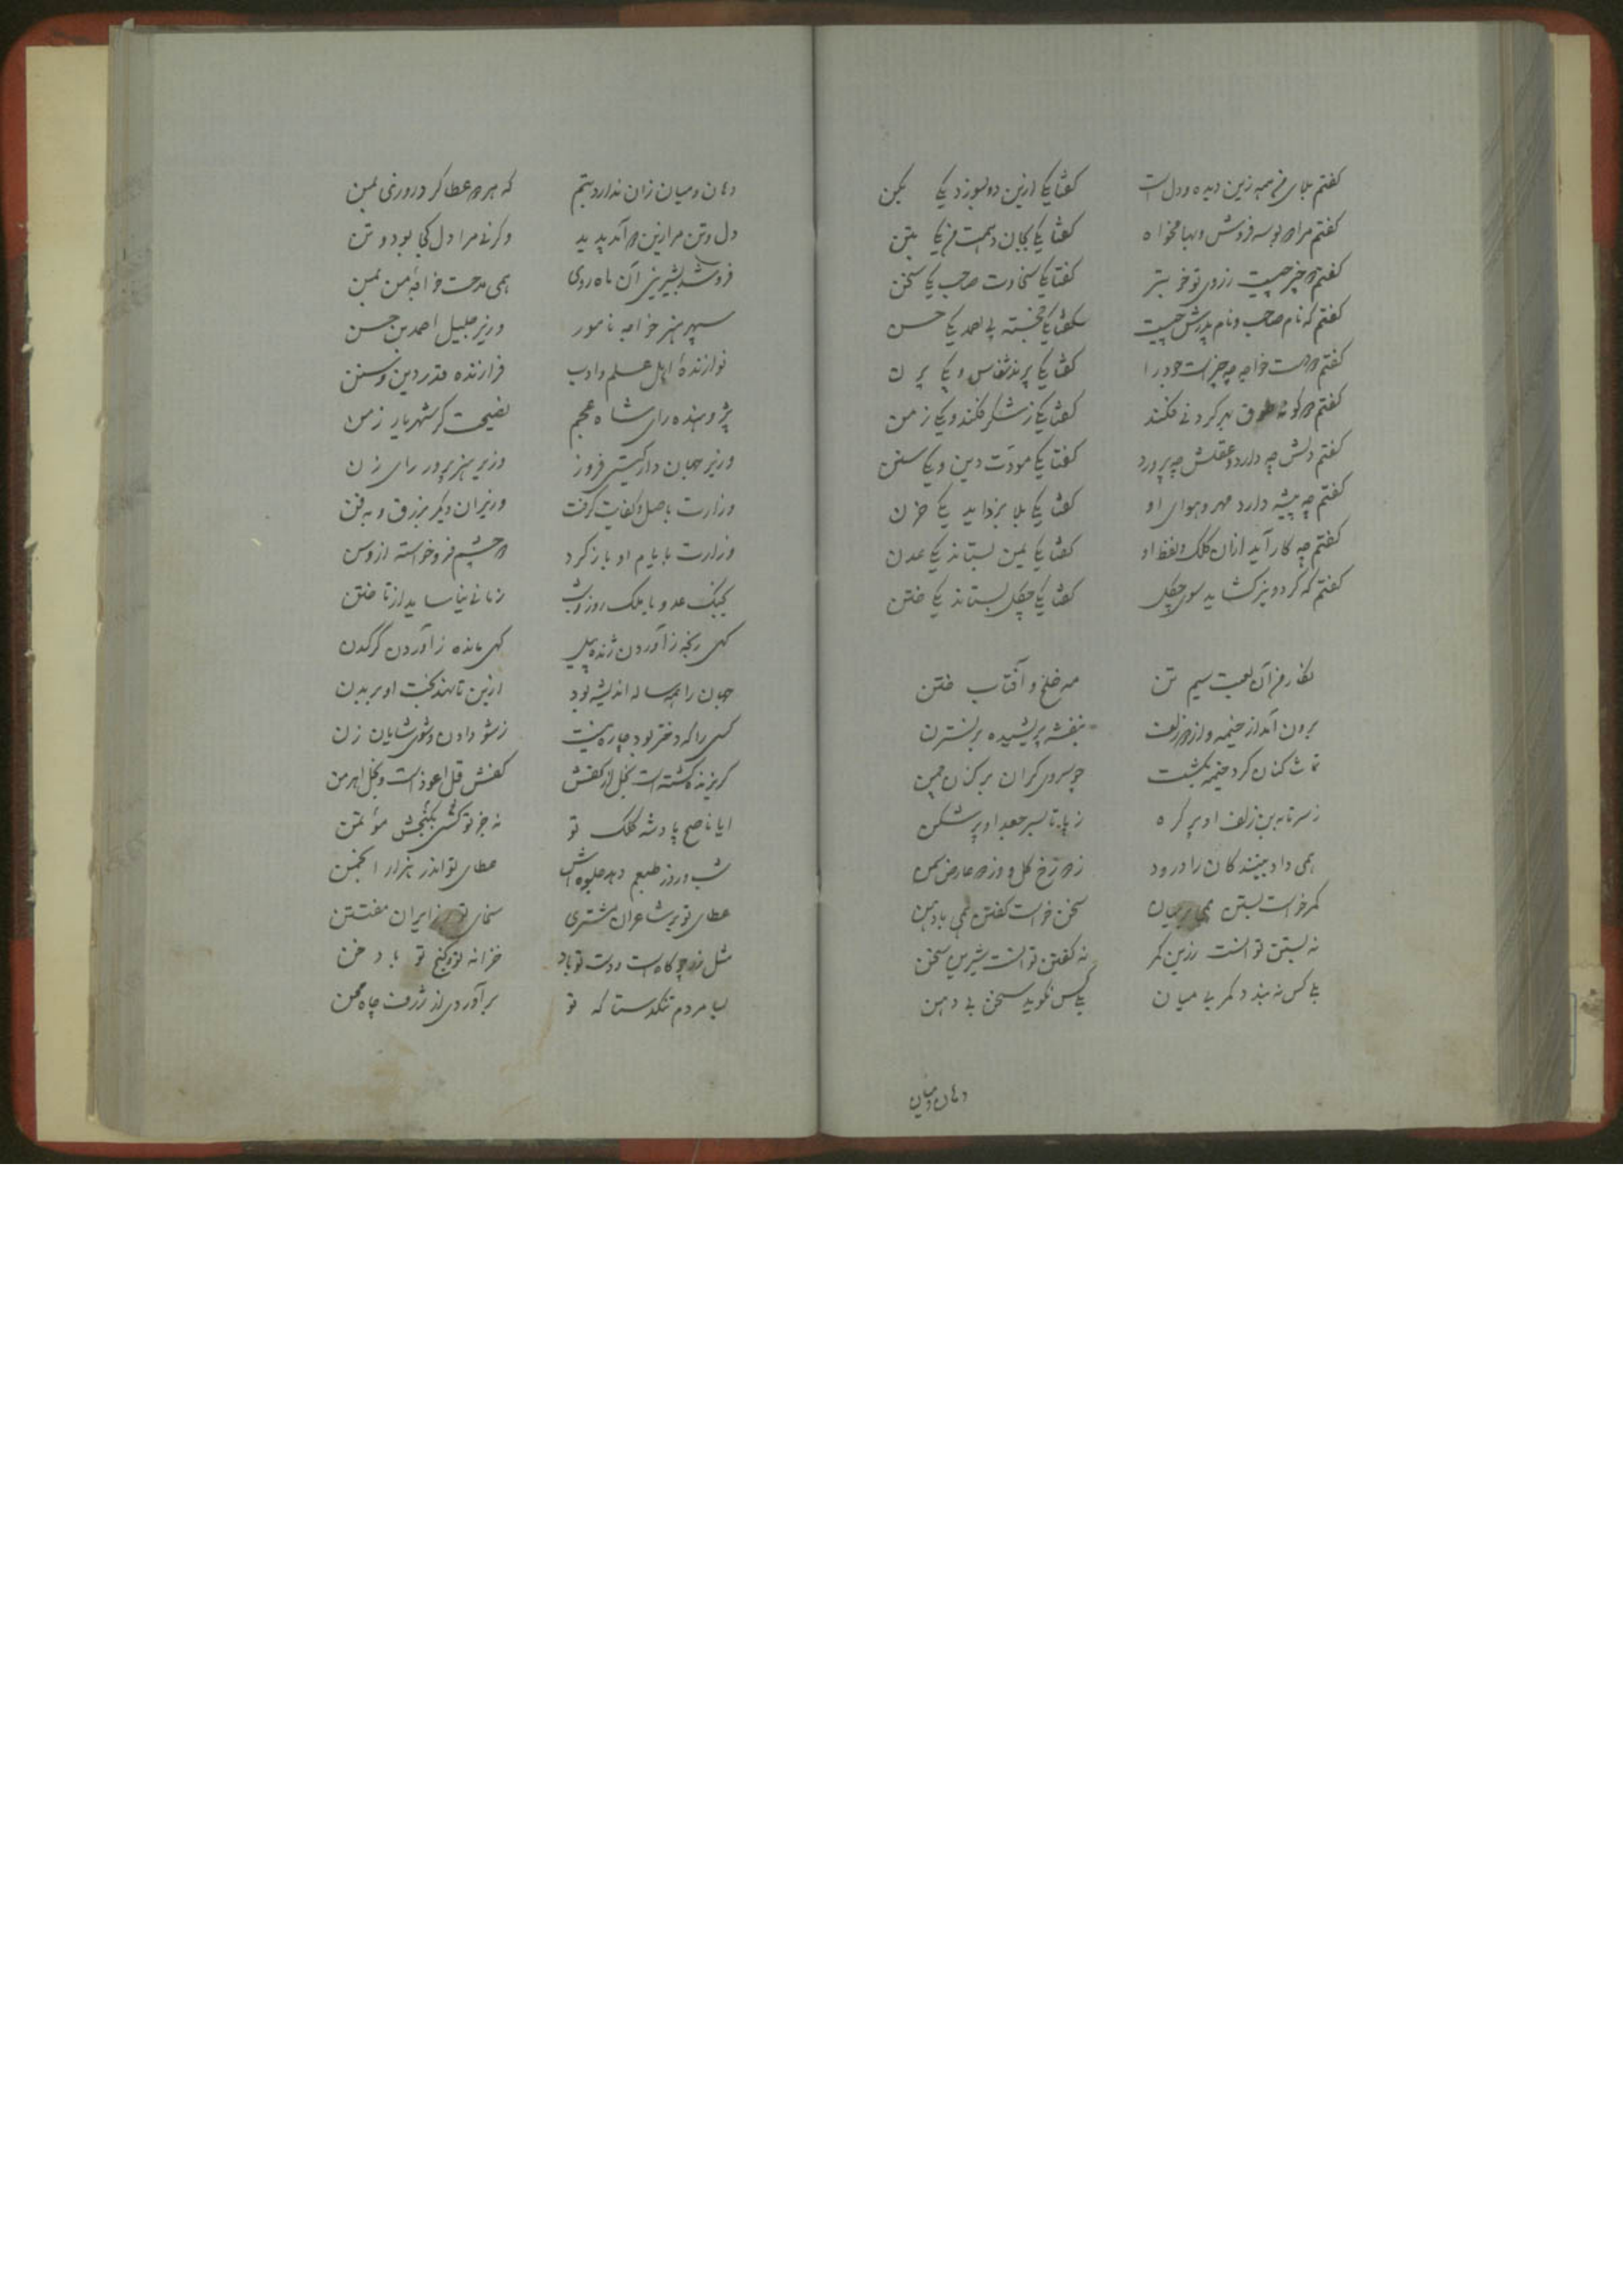 گفتم بلای من همه زین دیده و دل است گفتا یکی ازین دو بسوز د یکی بکن
گفتم مرا دو بوسه فروش و بها بخواه گفتا یکی بجان دهمت من یکی بتن
گفتم دو چیز چیست ز روی تو خوبتر گفتا یکی سخاوت صاحب یکی سخن
گفتم که نام صاحب و نام پدرش چیست گفتا یکی خجسته پی احمد یکی حسن
گفتم دو دست خواجه چه چیز است جود را گفتا یکی پرند نفاس و یکی پرن
گفتم دو گونه طوق بهر گردنی فکند گفتا یکی ز شکر فکند و یکی ز من
گفتم دلش چه دارد و عقلش چه پرورد گفتا یکی مودت دین و یکی سنن
گفتم چه پیشه دارد مهر و هوای او گفتا یکی بلا بزداید یکی حزن
گفتم چه کار آید ازان کلک و لفظ او گفتا یکی یمن بستاند یکی عدن
گفتم که گر دو تیر گشاید سوی چگل گفتا یکی چگل بستاند یکی ختن
نگار من آن لعبت سیم تن مه خلخ و آفتاب ختن
برون آمد از خیمه و از دو زلف بنفشه پریشیده بر نسترن
تماشا کنان گرد خیمه بگشت چو سروی گران بر کنار چمن
ز سر تا به بن زلف او پر گره ز پا تا بسر جعد او پر شکن
همی داد بینندگان را درود ز دو رخ گل و وز دو عارض سمن
کمر خواست بستن همی بر میان سخن خواست گفتن همی با دهن
نه بستن توانست زرین کمر نه گفتن توانست شیرین سخن
بلی کس نه بندد کمر بی میان بلی کس نگوید سخن بی دهن
دهان و میان
دهان و میان زان ندارد بتم که هر دو عطا کرد روزی بمن
دل و تن مرا زین دو آمد پدید وگرنی مرا دل کجا بود و تن
فروشد بشیرینی آن ماه روی همی مدحت خواجه من بمن
سپهر هنر خواجه نامور وزیر جلیل احمد بن حسن
نوازنده اهل علم و ادب فرازنده قدر دین و سنن
پژوهنده رای شاه عجم نصیحت گر شهریار زمن
وزیر جهان دار گیتی فروز وزیر هنر پرور رای زن
وزارت باصل و کفایت گرفت وزیران دیگر بزرق و بفن
وزارت بایام او باز کرد دو چشم فرو خواسته از وسن
بجنگ عدو با ملک روز و شب زمانی نیاساید از تاختن
گهی رنجه ز آوردن ژنده پیل گهی مانده ز آوردن کرگدن
جهان را همه ساله اندیشه بود ازین تا نهد تخت او بر بدن
کسی را که دختر بود چاره نیست ز شو دادن و شوی شایان زن
گریزنده گشته است بخل از کفش کفش قل اعوذ است و بخل اهرمن
ایا ناصح پادشه کلک تو نه جز تو کسی بگنجش مؤتمن
شب و روز طبعم دهد جلوه اش عطای تو اندر هزار انجمن
عطای تو بر شاعران مشتری سخای تو بر زایران مفتتن
مثل زد چو کاه است و دست تو باد خزانه تو و گنج تو بادخن
بسا مردم تنگدستا که تو برآوردی از ژرف چاه محن